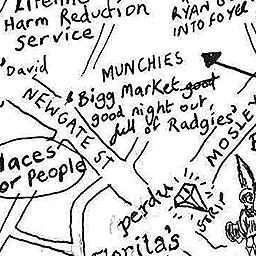 Harm Reduction
Service
RYAN
INTO FOYER
David
MUNCHIES
& Bigg Market goot
good night out,
full of Radgies'
NEWGATE ST
MOSLEY
laces
or People
perdu
STRIP
lorita's